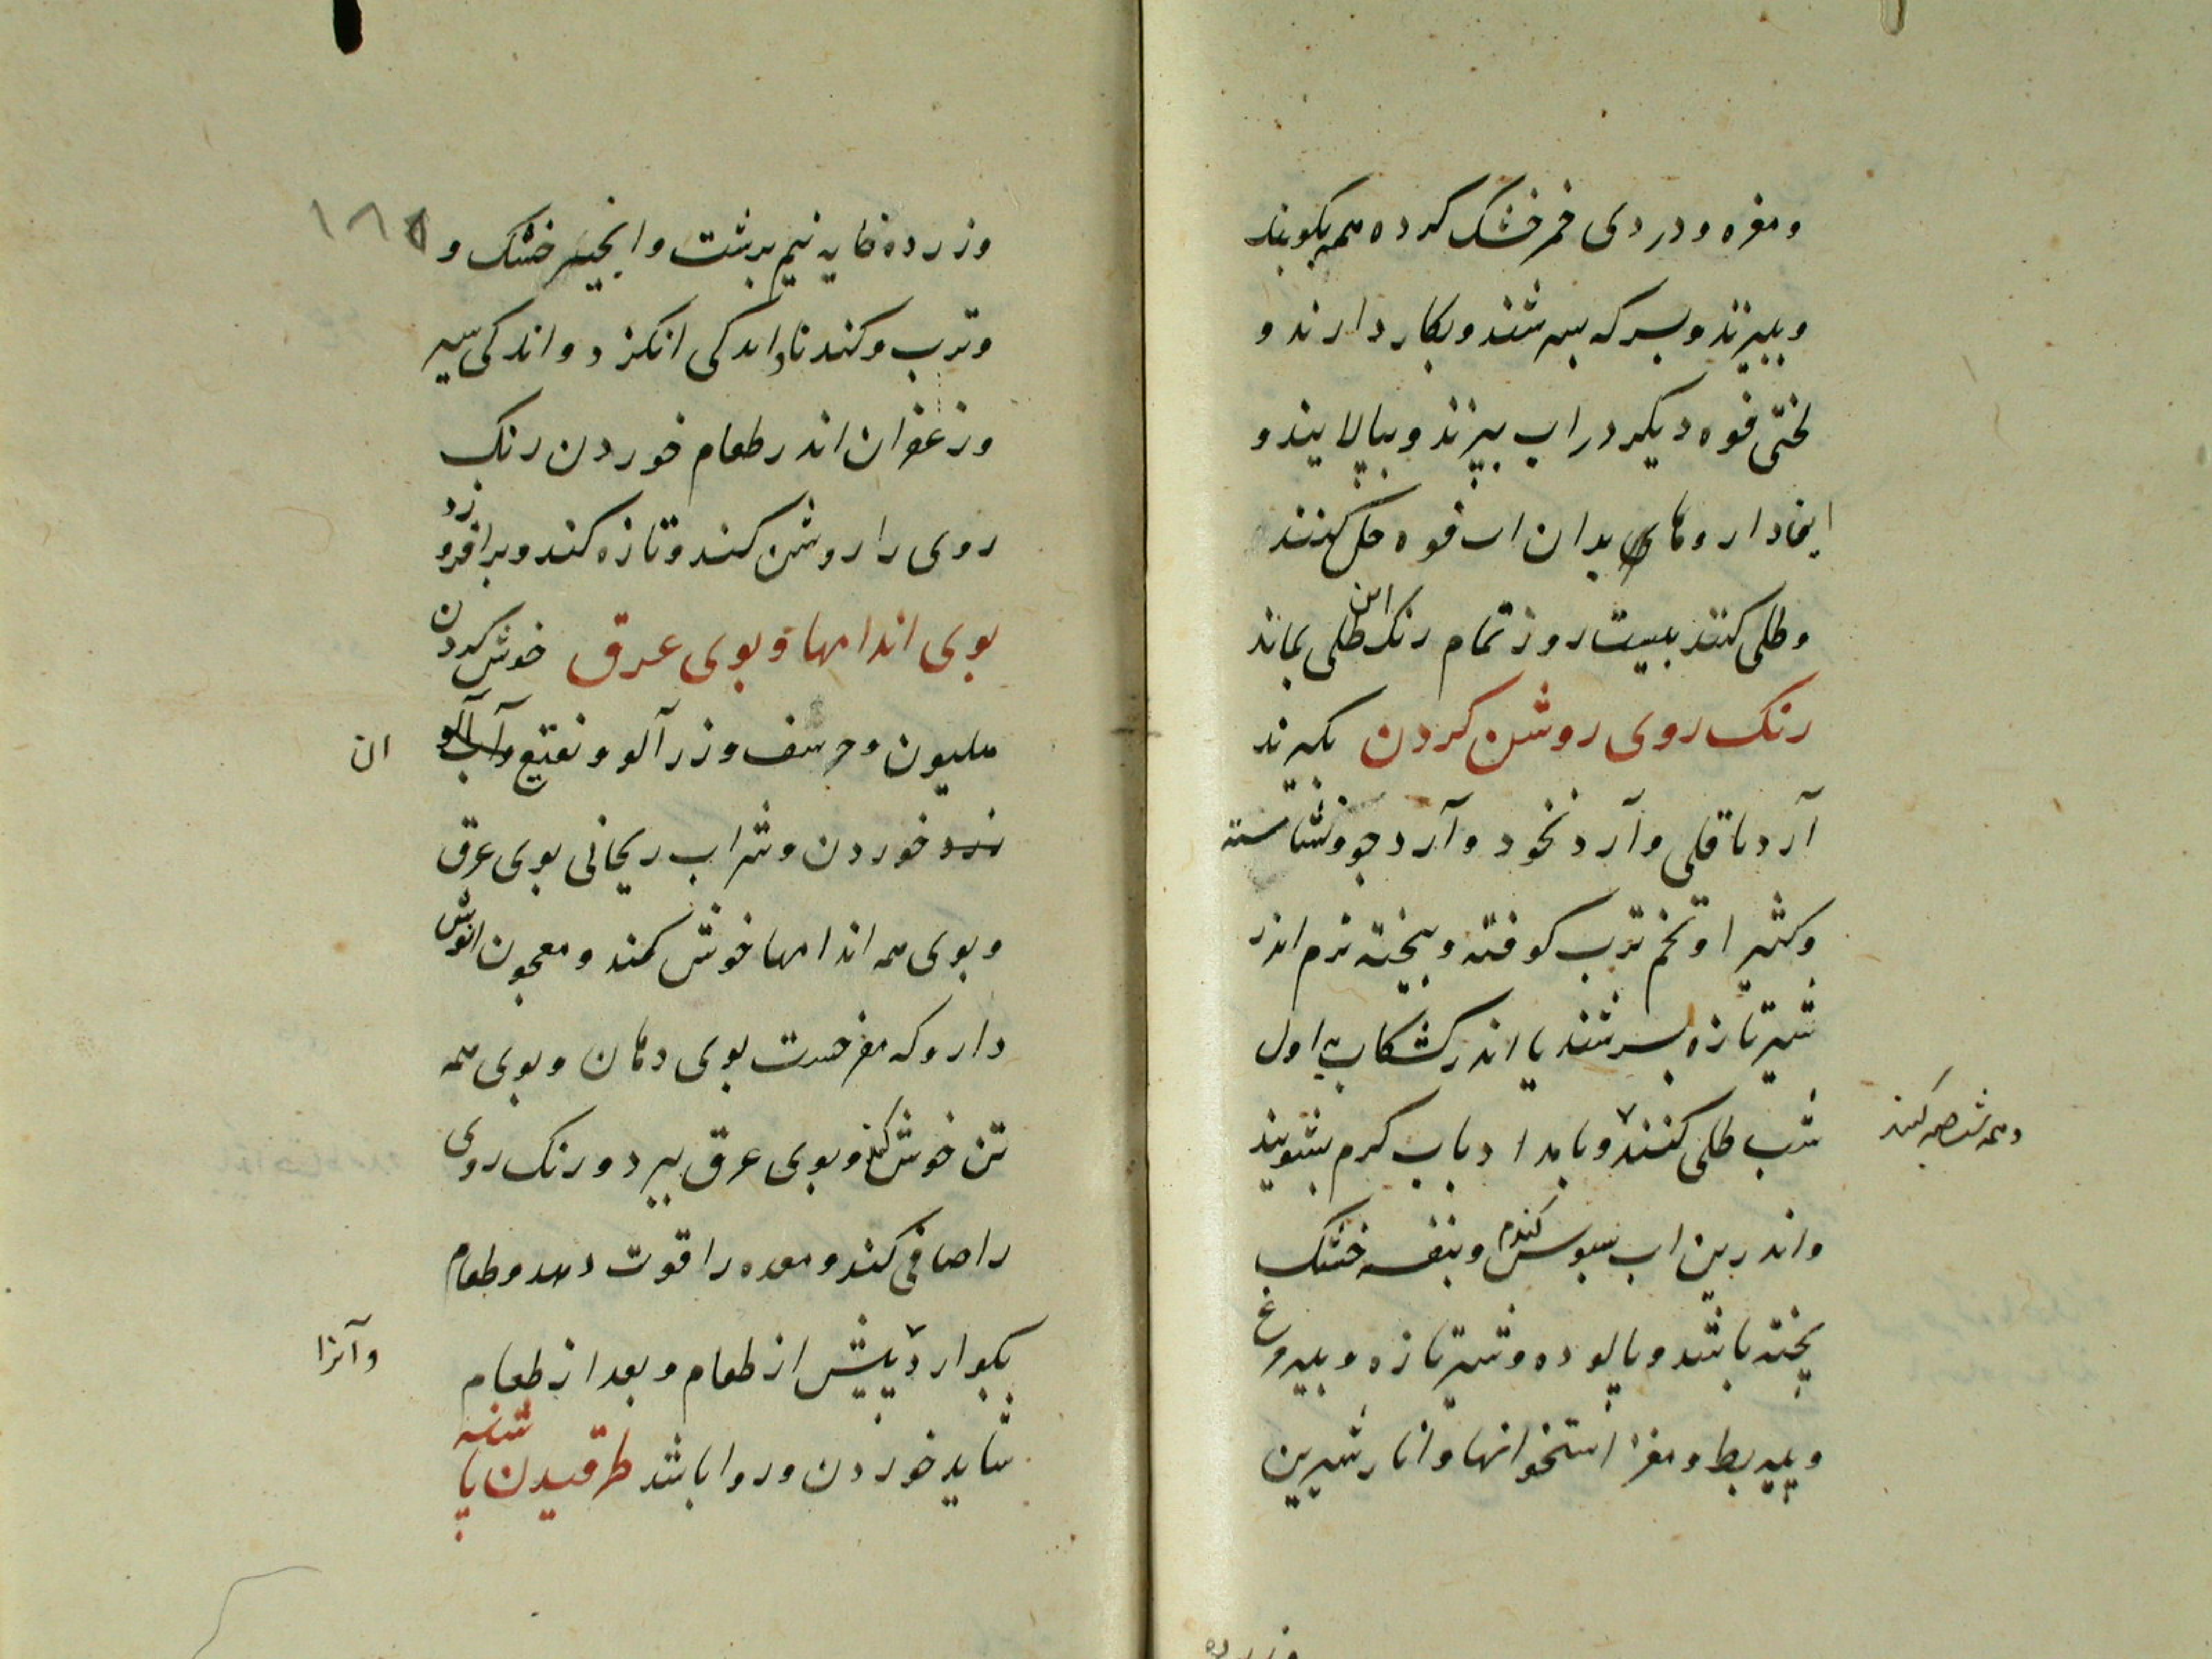 ومغره ودردی خمر خشک کرده همه بکوبند
وببیزند وبسرکه بسرشند وبکار دارند و
لختی فوه دیکر در اب بپزند وبپالایند و
این داروهای بدان اب فوه حل کنند
وطلی کنند بیست روز تمام رنک این طلی بماند
رنک روی روشن کردن بکیرند
آرد باقلی وآرد نخود وآرد جو ونشاسته
وکثیرا وتخم ترب کوفته وبیخته نرم اندر
شیر تازه بسرشند یا اندر کشکاب اول
شب طلی کنند وبامداد باب کرم بشویند
وهمه شب
واندرین اب سبوس کندم وبنفشه خشک
پخته باشد وپالوده وشیر تازه وپیه مرغ
وپیه بط ومغز استخوانها وانار شیرین
وزرده
۱۸۵
وزرده خایه نیم برشت وانجیر خشک و
وترب وکندنا واندکی انکزد واندکی سیر
وزعفران اندر طعام خوردن رنک
روی را روشن کند وتازه کند وبرافروزد
بوی اندامها وبوی عرق خوش کردن
هلیون وحرشف وزردآلو ونقیع وآب آلو
ان
زرد خوردن وشراب ریحانی بوی عرق
وبوی همه اندامها خوش کند ومعجون انوش
دارو که مفرحست بوی دهان وبوی همه
تن خوش کند وبوی عرق ببرد ورنک روی
را صافی کند ومعده را قوت دهد وطعام
بکوارد پیش از طعام وبعد از طعام
وآنرا
شاید خوردن وروا باشد طرقیدن پاشنه پا